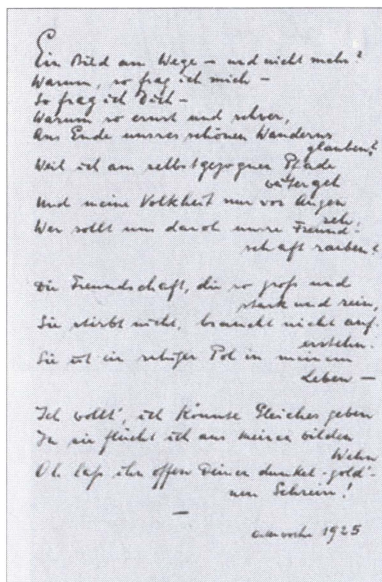 Ein Bild am Wege – und nicht mehr?
Warum, so frag ich mich –
So frag ich Dich –
Warum so ernst und schwer,
Ans Ende unsres schönen Wanderns
glauben?
Weil ich am selbstgezognen Pfade
weitergeh
Und meine Volkheit nur vor Augen
seh,
Wer sollt uns darob unsre Freund-
schaft rauben?
Die Freundschaft, die so groß und
stark und rein,
Sie stirbt nicht, braucht nicht auf-
erstehn.
Sie ist ein ruhiger Pol in meinem
Leben –
Ich wollt', ich könnte Gleiches geben
In sie flücht ich aus meinen wilden
Wehn
Oh laß ihr offen Deinen dunkel-gold'-
nen Schrein!
–
1925